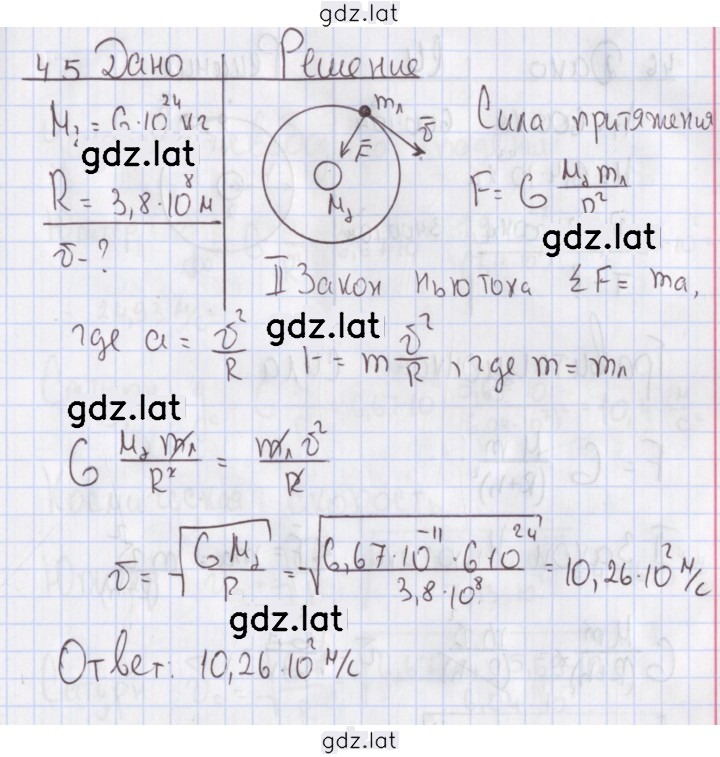 gdz.lat
45 Дано Решение
M₂ = 6·10²⁴ кг
gdz.lat
R = 3,8·10⁸ м
v̄ - ?
mл
v̄
F̄
M₂
Сила притяжения
F = G M₂ mл / R²
gdz.lat
II Закон Ньютона ΣF = ma,
где a = v̄²/R gdz.lat F = m v̄²/R, где m = mл
gdz.lat
G M₂ mл / R² = mл v̄² / R
v̄ = √(G M₂ / R) = √(6,67·10⁻¹¹·6·10²⁴ / 3,8·10⁸) = 10,26·10² м/с
gdz.lat
Ответ: 10,26·10² м/с
gdz.lat